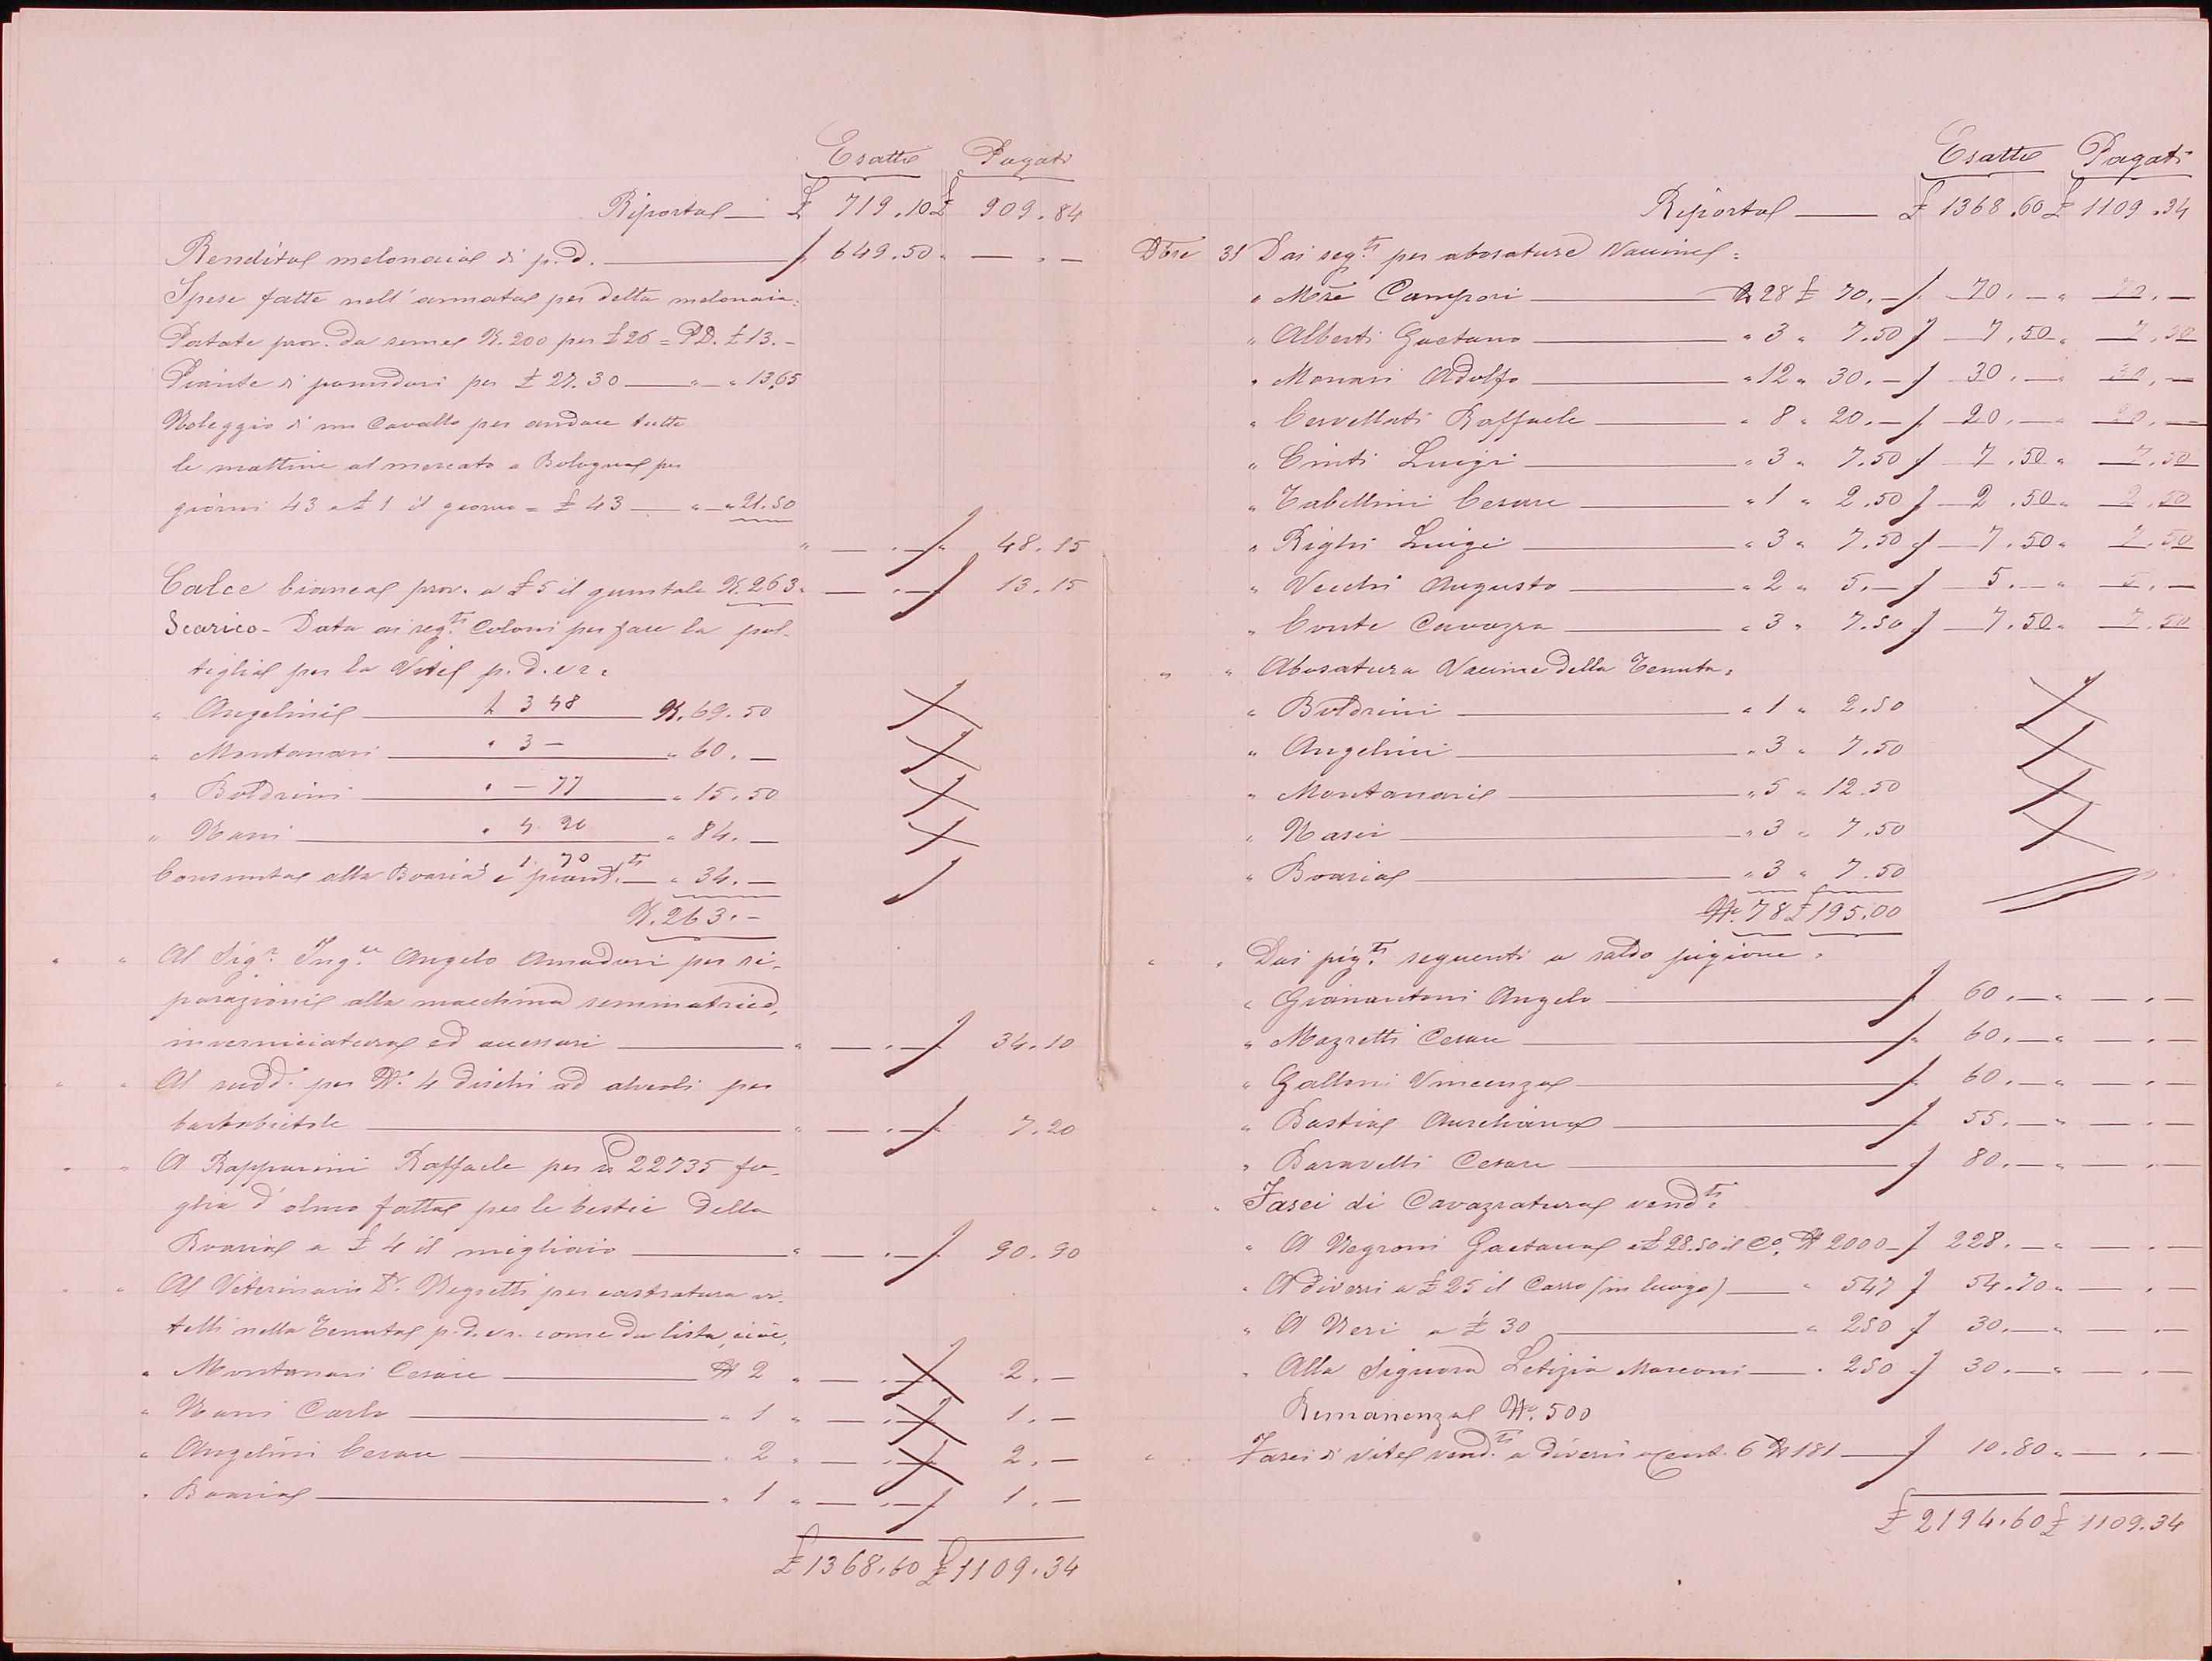 Esatte Pagati
Riporto — £ 719.10 £ 909.84
Rendita melonaia di p.d. — 649.50 " — . —
Spese fatte nell'annata per detta melonaia:
Patate prov. da seme K. 200 per £ 26 = P.D. £ 13. —
Piante di pomidori per £ 27.30 — " — " 13,65
Noleggio di un Cavallo per andare tutte
le mattine al mercato a Bologna per
giorni 43 a £ 1 il giorno = £ 43 — " — " 21.50
" — . — " 48.15
Calce bianca prov. a £ 5 il quintale K. 263 " — . — 13.15
Scarico - Data ai seg.ti Coloni per fare la pol-
tiglia per la Vite p.d. e r.
" Angelini — 3 48 — K. 69.50
" Montanari — " 3 — — " 60. —
" Boldrini — " — 77 — " 15.50
" Nani — " 4 20 — " 84. —
Consunta alla Boaria e piant.ti 1. 70 — " 34. —
K. 263. —
" " Al Sig.r Ing.re Angelo Amaduri per ri-
parazioni alla macchina seminatrice,
inverniciatura ed accessori — " — . — 34.10
" " Al sudd.o per N.o 4 dischi ad alveoli per
barbabietole — " — . — 7.20
" " A Rapparini Raffaele per 22735 fo-
glia d'olmo fatta per le bestie della
Boaria a £ 4 il migliaio — " — . — 90.90
" " Al Veterinario D.r Negretti per castratura vi-
telli nella Tenuta p.d. e r. come da lista, cioè,
" Montanari Cesare — N 2 " — . — 2. —
" Nani Carlo — " 1 " — . — 1. —
" Angelini Cesare — " 2 " — . — 2. —
" Boaria — " 1 " — . — 1. —
£ 1368.60 £ 1109.34
Esatte Pagati
Riporto — £ 1368.60 £ 1109.34
Dbre 31 Dai seg.ti per abosature Vaccine =
" Mse Campori — N 28 £ 70. — 70. — " 70. —
" Alberti Gaetano — " 3 " 7.50 — 7.50 " 7.50
" Monari Adolfo — " 12 " 30. — 30. — " 30. —
" Cervellati Raffaele — " 8 " 20. — 20. — " 20. —
" Cinti Luigi — " 3 " 7.50 — 7.50 " 7.50
" Tabellini Cesare — " 1 " 2.50 — 2.50 " 2.50
" Righi Luigi — " 3 " 7.50 — 7.50 " 7.50
" Vecchi Augusto — " 2 " 5. — 5. — " 5. —
" Conte Cavazza — " 3 " 7.50 — 7.50 " 7.50
" " Abosatura Vaccine della Tenuta =
" Boldrini — " 1 " 2.50
" Angelini — " 3 " 7.50
" Montanari — " 5 " 12.50
" Nasci — " 3 " 7.50
" Boaria — " 3 " 7.50
N.o 78 £ 195.00
" " Dai pig.ti seguenti a saldo pigione =
" Gianantoni Angelo — 60. — " — . —
" Mazzetti Cesare — 60. — " — . —
" Galloni Vincenza — 60. — " — . —
" Bastia Aureliana — 55. — " — . —
" Baravelli Cesare — 80. — " — . —
" " Fasci di Cavazzatura vend.ti
" A Negroni Gaetana a £ 28.50 il C.o N 2000 — 228. — " — . —
" A diversi a £ 25 il Carro (in luogo) — " 547 54.70 " — . —
" A Neri a £ 30 — " 250 30. — " — . —
" Alla Signora Letizia Marconi — " 250 30. — " — . —
Rimanenza N.o 500
" " Fasci di vite vend.ti a diversi a cent. 6 N 181 — 10.80 " — . —
£ 2194.60 £ 1109.34